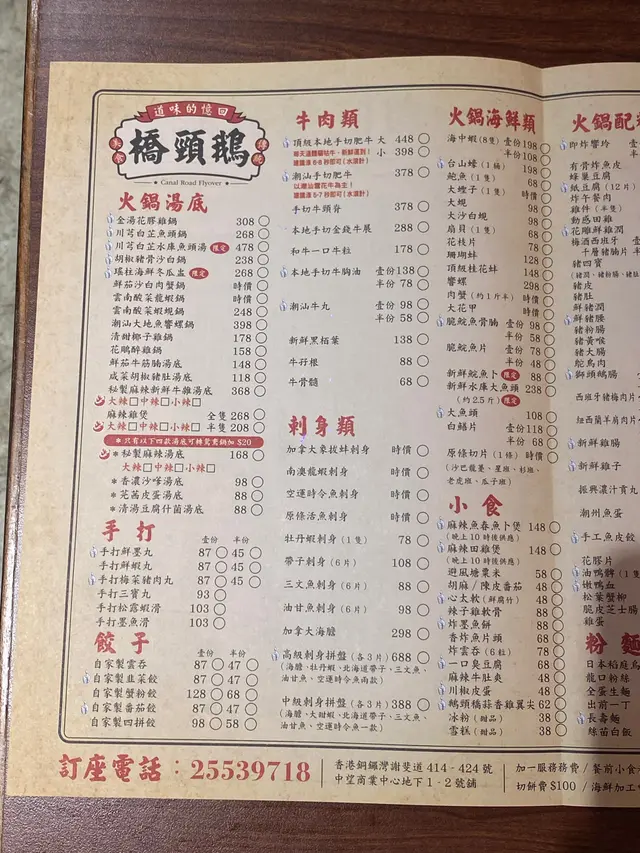 道味的憶回
美食
橋頭鵝
Canal Road Flyover
火鍋湯底
金湯花膠雞鍋 308
川芎白芷魚頭鍋 268
川芎白芷水庫魚頭湯 限定 478
胡椒豬骨沙白鍋 238
瑤柱海鮮冬瓜盅 限定 268
鮮茄沙白肉蟹鍋 時價
雲南酸菜龍蝦鍋 時價
雲南酸菜蝦蜆鍋 248
潮汕大地魚響螺鍋 398
清甜椰子雞鍋 178
花鵰醉雞鍋 158
鮮茄牛筋腩湯底 148
咸菜胡椒豬肚湯底 118
秘製麻辣新鮮牛雜湯底 368
大辣□中辣□小辣□
麻辣雞煲 全隻 268
大辣□中辣□小辣□ 半隻 208
*只有以下四款湯底可轉鴛鴦鍋加 $20
*秘製麻辣湯底 168
大辣□中辣□小辣□
*香濃沙嗲湯底 98
*芫荽皮蛋湯底 88
*清湯豆腐什菌湯底 88
手打
壹份 半份
手打鮮墨丸 87 45
手打鮮蝦丸 87 45
手打梅菜豬肉丸 87 45
手打三寶丸 93
手打松露蝦滑 103
手打墨魚滑 103
餃子
壹份 半份
自家製雲吞 87 47
自家製韭菜餃 87 47
自家製蟹粉餃 128 68
自家製番茄餃 87 47
自家製四拼餃 98 58
牛肉類
頂級本地手切肥牛 大 448
每天達購貓咕牛，新鮮運到！ 小 398
建議涮 6-8 秒即可 (水滾計)
潮汕手切肥牛 378
以潮汕雪花牛為主！
建議涮 5-7 秒即可 (水滾計)
手切牛頸脊 378
本地手切金錢牛展 288
和牛一口牛粒 178
本地手切牛胸油 壹份 138
半份 78
潮汕牛丸 壹份 98
半份 58
新鮮黑栢葉 138
牛孖根 88
牛骨髓 68
刺身類
加拿大象拔蚌刺身 時價
南澳龍蝦刺身 時價
空運時令魚刺身 時價
原條活魚刺身 時價
牡丹蝦刺身 (1隻) 78
帶子刺身 (6片) 108
三文魚刺身 (6片) 88
油甘魚刺身 (6片) 98
加拿大海膽 298
高級刺身拼盤 (各3片) 688
(海膽、牡丹蝦、北海道帶子、三文魚、
油甘魚、空運時令魚兩款)
中級刺身拼盤 (各3片) 388
(海膽、大甜蝦、北海道帶子、三文魚、
油甘魚、空運時令魚一款)
火鍋海鮮類
海中蝦 (8隻) 壹份 198
半份 108
台山蠔 (1桶) 198
鮑魚 (1隻) 68
大蟶子 (1隻) 時價
大蜆 98
大沙白蜆 98
扇貝 (1隻) 68
花枝片 78
珊瑚蚌 128
頂級桂花蚌 148
響螺 298
肉蟹 (約1斤半) 時價
大花甲 時價
脆鯇魚骨腩 壹份 98
半份 58
脆鯇魚片 壹份 78
半份 48
新鮮鯇魚卜 限定 88
新鮮水庫大魚頭 238
(約2.5斤) 限定
大魚頭 108
白鱔片 壹份 118
半份 68
原條切片 (1條) 時價
(沙巴龍躉、星斑、杉斑、
老虎斑、瓜子斑)
小食
麻辣魚春魚卜煲 148
(晚上10時後供應)
麻辣田雞煲 148
(晚上10時後供應)
避風塘粟米 58
胡麻/陳皮番茄 48
心太軟 (鮮腐竹) 48
辣子雞軟骨 88
炸墨魚餅 88
香炸魚片頭 68
炸雲吞 (6粒) 78
一口臭豆腐 68
麻辣牛肚爽 48
川椒皮蛋 48
鵝頸橋蒜香雞翼尖 62
冰粉 (甜品) 38
雪糕 (甜品) 38
火鍋配
即炸響玲
有骨炸魚皮
蜂巢豆腐
紙豆腐 (12片)
炸午餐肉
雞件 (半隻)
動感田雞
花雕鮮雞潤
梅酒西班牙
千層豬腩片
豬四寶
(豬潤、豬粉腸、豬肚
豬皮
豬肚
鮮豬潤
鮮豬腰
豬粉腸
豬黃喉
豬大腸
鴕鳥肉
獅頭鵝腸
西班牙豬梅肉片
紐西蘭羊肩肉片
新鮮雞腸
新鮮雞子
振興濃汁貢丸
潮州魚蛋
手工魚皮餃
花膠片
油鴨髀 (1隻
嫩鴨血
松葉蟹柳
脆皮芝士腸
雞蛋
粉麵
日本稻庭烏
龍口粉絲
全蛋生麵
出前一丁
長壽麵
絲苗白飯
訂座電話：25539718
香港銅鑼灣謝斐道 414 - 424 號
中望商業中心地下 1 - 2 號舖
加一服務務費 / 餐前小食
切餅費 $100 / 海鮮加工